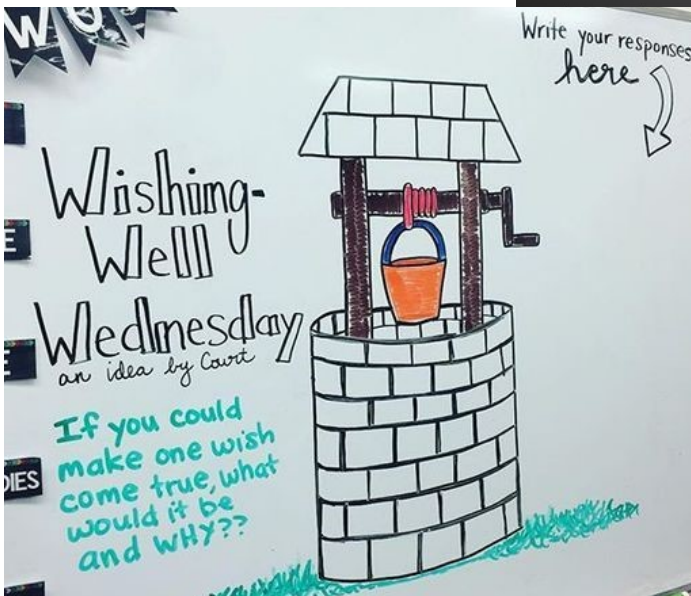 WOO
Write your responses
here
Wishing-
Well
Wednesday
an idea by Court
If you could
make one wish
come true, what
would it be
and WHY??
E
E
DIES